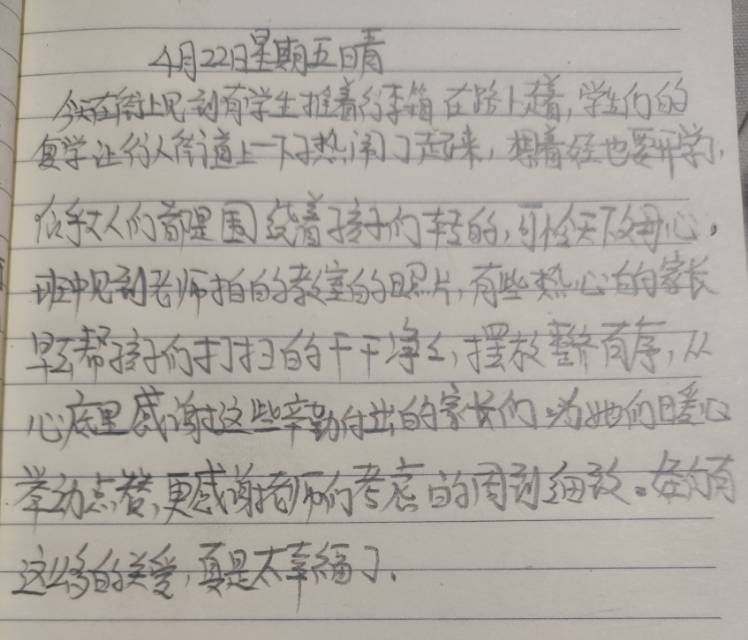 4月22日星期五晴
今天在街上见到有学生推着行李箱在路上走着,学生们的
复学让行人街道上一下子热闹了起来,想着娃也要开学,
似乎大人们都是围绕着孩子们转的,可怜天下父母心。
班中见到老师拍的教室的照片,有些热心的家长
早去帮孩子们打扫的干干净净,摆放整齐有序,从
心底里感谢这些辛勤付出的家长们。为她们暖心
举动点赞,更感谢老师们考虑的周到细致。娃们有
这么多的关爱,真是太幸福了.